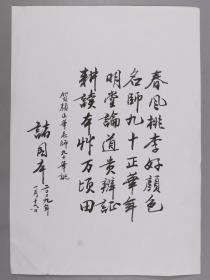 春风桃李好颜色
名师九十正华年
明堂论道贵辨证
耕读本草万顷田
贺颜正华老师九十华诞
诸国本
二〇〇九年
一月十八日